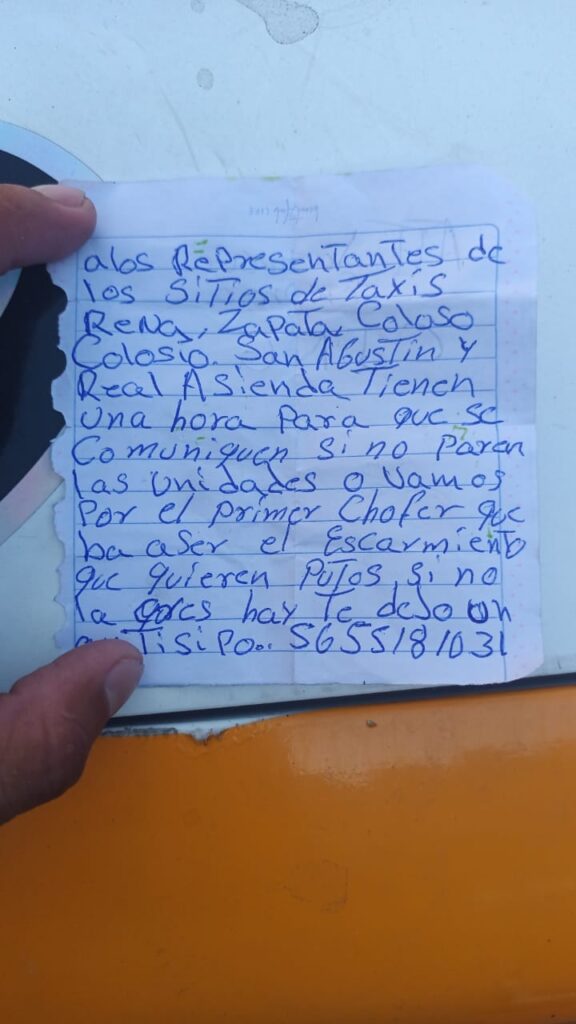 alos Representantes de
los Sitios de Taxis
Rena, Zapata, Coloso
Colosio. San Agustin y
Real Asienda Tienen
una hora para que se
Comuniquen si no Paren
las unidades o vamos
Por el primer Chofer que
ba aser el Escarmiento
que quieren Putos, si no
la hay te dejo un
Tisipo.. 5655181031